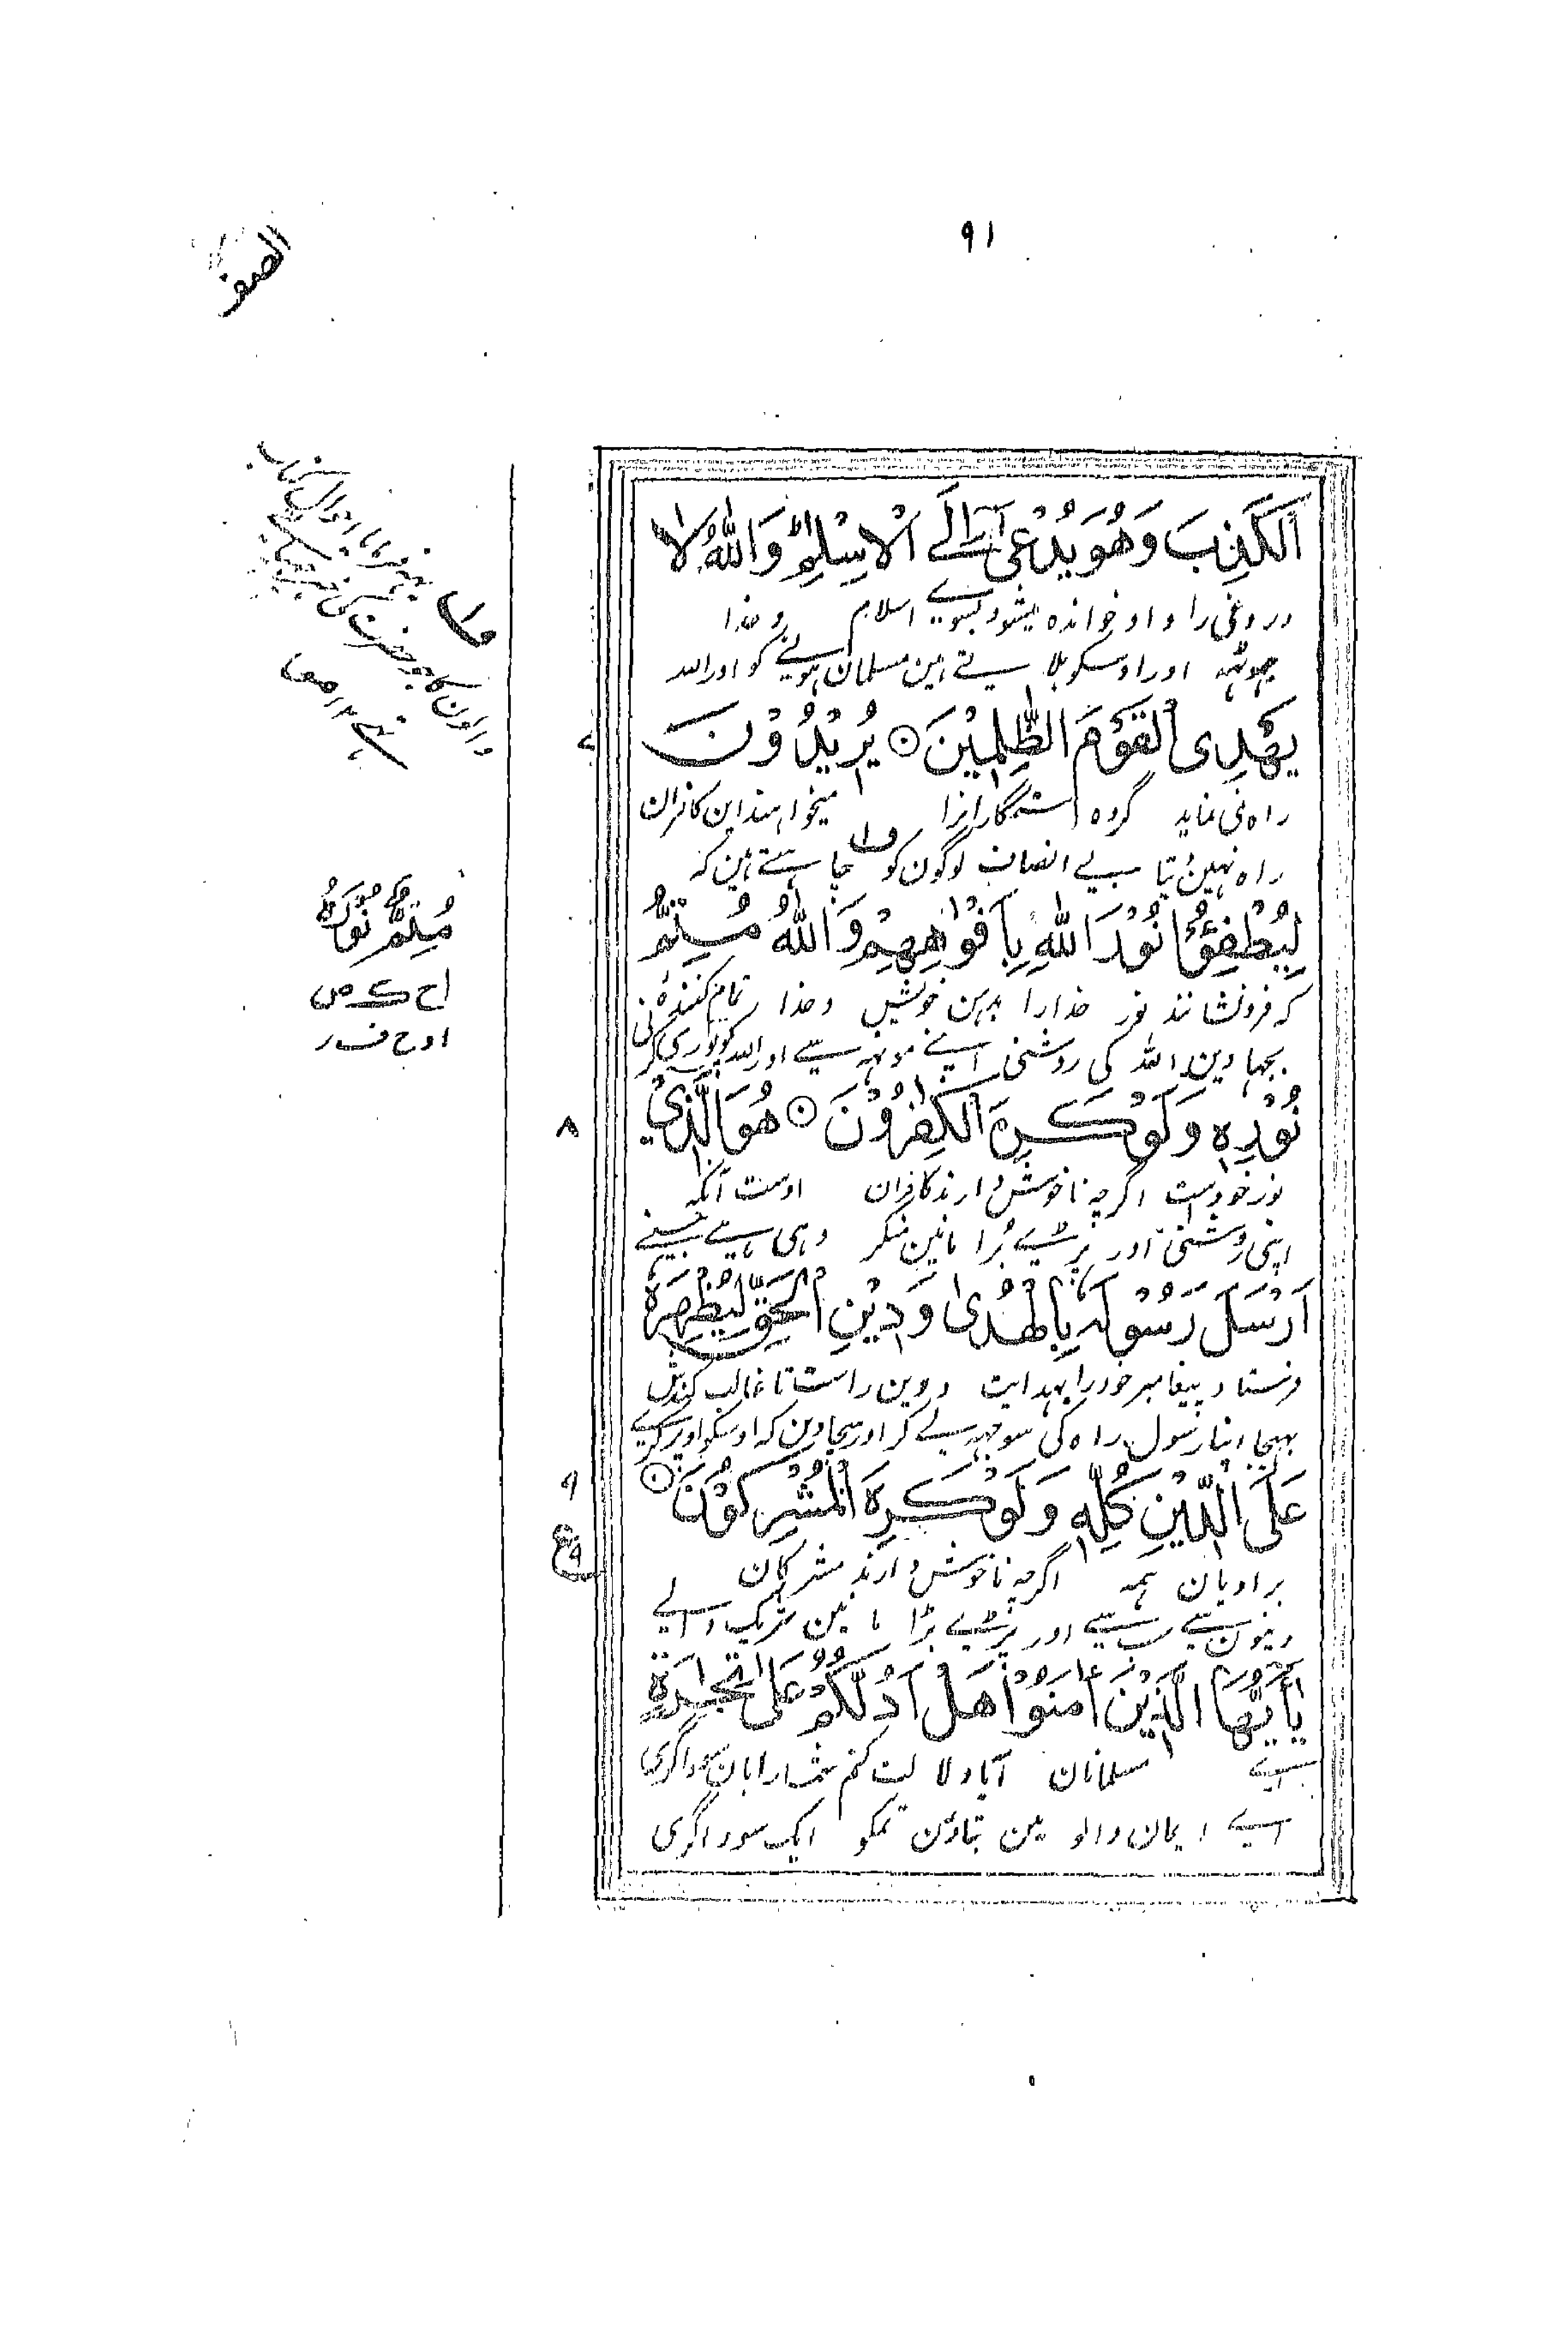 ۹۱
الصف
الْكَذِبَ وَهُوَ يُدْعٰى اِلَى الْاِسْلٰمِ وَاللّٰهُ لَا
دروغی را و او خوانده میشود بسوے اسلام و خدا
جهوٹهہ اور اوسکو بلاتے ہین مسلمان ہونے کو اور اللہ
يَهْدِى الْقَوْمَ الظّٰلِمِيْنَ ۝ يُرِيْدُوْنَ
۷
راه نمی نماید گروه ستمگارانرا میخواہند این کافران
راه نہین دیتا بے انصاف لوگون کو ف۱ چاہتے ہین کہ
لِيُطْفِـُٔوْا نُوْرَ اللّٰهِ بِاَفْوَاهِهِمْ وَاللّٰهُ مُتِمٌّ
کہ فرونشانند نور خدا را بدہن خویش و خدا تمام کننده
بجہاوین اللہ کی روشنی اپنے مونہہ سے اور اللہ کو پوری کرنی
نُوْرِهٖ وَلَوْ كَرِهَ الْكٰفِرُوْنَ ۝ هُوَ الَّذِيْٓ
۸
نور خود است اگرچہ ناخوش دارند کافران اوست آنکہ
اپنی روشنی اور پڑے بُرا مانین منکر وہی ہے جسنے
اَرْسَلَ رَسُوْلَهٗ بِالْهُدٰى وَدِيْنِ الْحَقِّ لِيُظْهِرَهٗ
فرستاد پیغامبر خود را بہدایت و دین راست تا غالب کندش
بہیجا اپنا رسول راه کی سوجہہ لے کر اور سچا دین کہ اوسکو اوپر کرے
عَلَى الدِّيْنِ كُلِّهٖ وَلَوْ كَرِهَ الْمُشْرِكُوْنَ ۝
۹
ع
۹
بر ادیان ہمہ اگرچہ ناخوش دارند مشرکان
دینون سے سب سے اور پڑے بُرا مانین شریک والے
يٰٓاَيُّهَا الَّذِيْنَ اٰمَنُوْا هَلْ اَدُلُّكُمْ عَلٰى تِجَارَةٍ
اے مسلمانان آیا دلالت کنم شما را بآن سوداگری
اے ایمان والو مین بتاؤن تمکو ایک سوداگری
ف۱
مُتِمٌّ نُوْرَهٗ